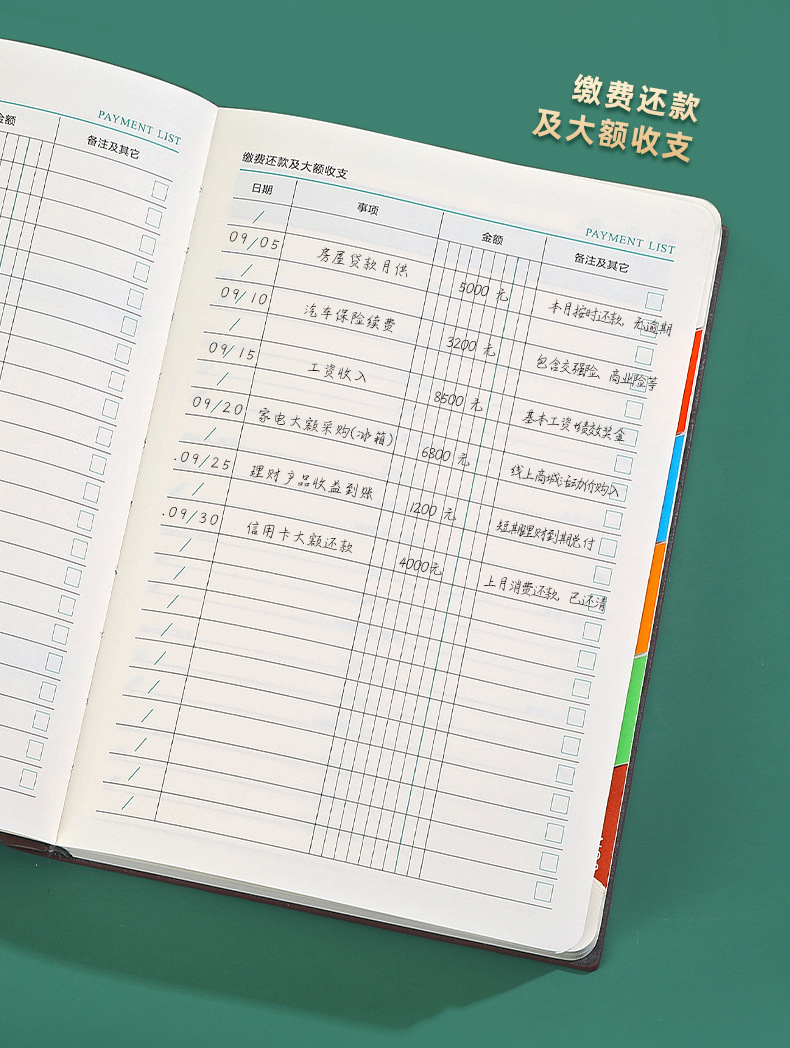 缴费还款
及大额收支
金额
PAYMENT LIST
备注及其它
缴费还款及大额收支
PAYMENT LIST
日期 事项 金额 备注及其它
09/05 房屋贷款月供 5000 元 本月按时还款, 无逾期
09/10 汽车保险续费 3200 元 包含交强险、商业险等
09/15 工资收入 8500 元 基本工资+绩效奖金
09/20 家电大额采购(冰箱) 6800 元 线上商城活动价购入
.09/25 理财产品收益到账 1200 元 短期理财到期兑付
.09/30 信用卡大额还款 4000元 上月消费还款, 已还清